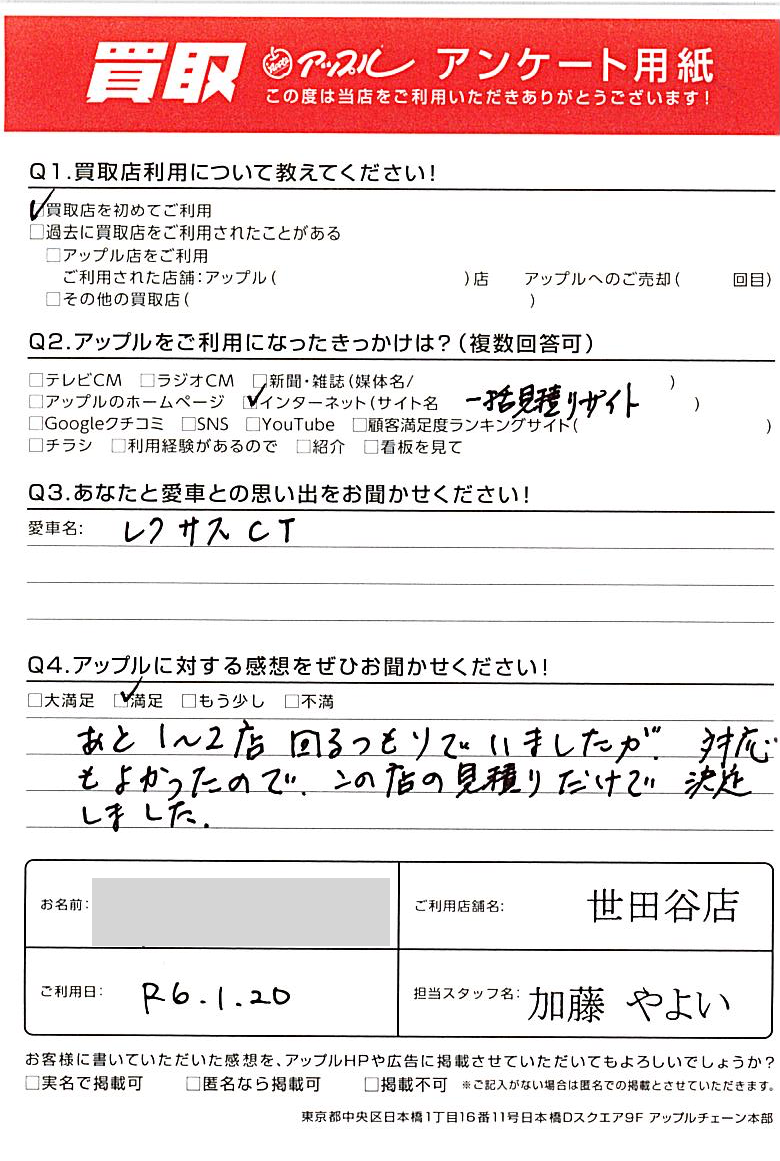 買取 アップル アンケート用紙
この度は当店をご利用いただきありがとうございます!
Q1.買取店利用について教えてください!
☑買取店を初めてご利用
□過去に買取店をご利用されたことがある
□アップル店をご利用
ご利用された店舗:アップル( )店 アップルへのご売却( 回目)
□その他の買取店( )
Q2.アップルをご利用になったきっかけは?(複数回答可)
□テレビCM □ラジオCM □新聞・雑誌(媒体名/ )
□アップルのホームページ ☑インターネット(サイト名 一括見積りサイト )
□Googleクチコミ □SNS □YouTube □顧客満足度ランキングサイト( )
□チラシ □利用経験があるので □紹介 □看板を見て
Q3.あなたと愛車との思い出をお聞かせください!
愛車名: レクサスCT
Q4.アップルに対する感想をぜひお聞かせください!
□大満足 ☑満足 □もう少し □不満
あと1〜2店回るつもりでいましたが、対応
もよかったので、この店の見積りだけで決定
しました.
お名前:
ご利用店舗名: 世田谷店
ご利用日: R6.1.20
担当スタッフ名: 加藤 やよい
お客様に書いていただいた感想を、アップルHPや広告に掲載させていただいてもよろしいでしょうか?
□実名で掲載可 □匿名なら掲載可 □掲載不可 ※ご記入がない場合は匿名での掲載とさせていただきます。
東京都中央区日本橋1丁目16番11号日本橋Dスクエア9F アップルチェーン本部